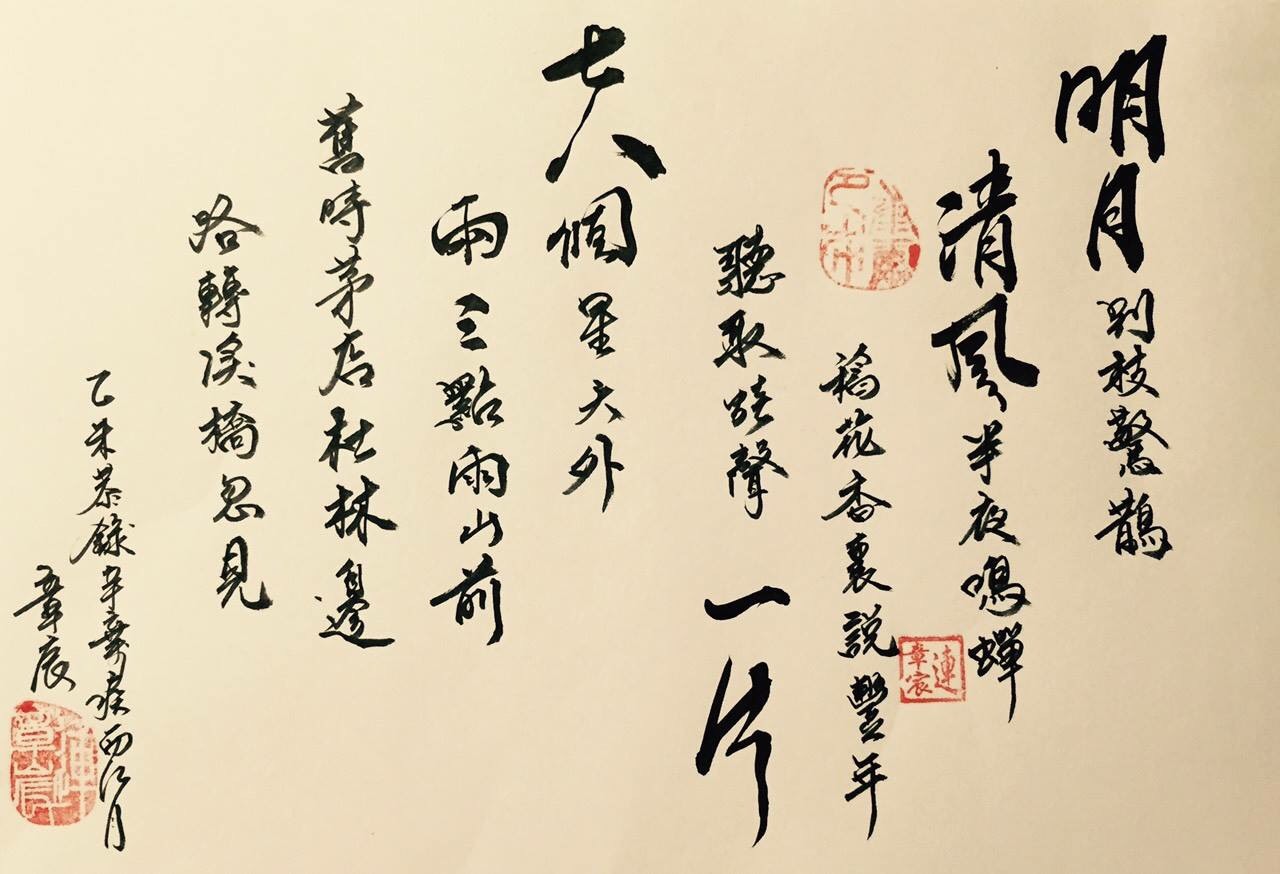 明月別枝驚鵲
清風半夜鳴蟬
稻花香裏説豐年
聽取蛙聲一片
七八個星天外
兩三點雨山前
舊時茅店社林邊
路轉溪橋忽見
乙未恭錄辛棄疾西江月
章宸
連章宸